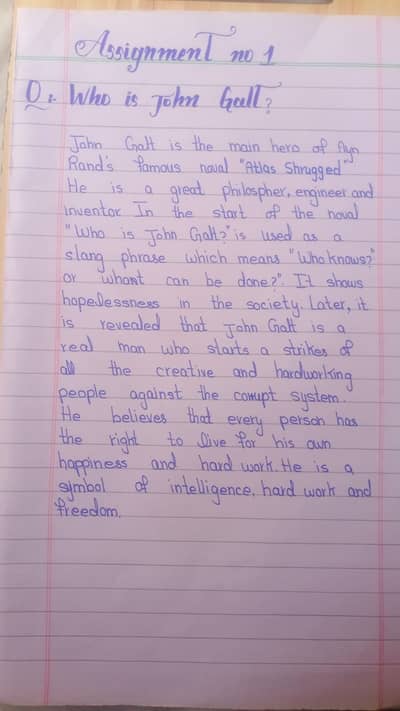 Assignment no 1
Q: Who is John Galt?
John Galt is the main hero of Ayn
Rand's famous noval "Atlas Shrugged"
He is a great philospher, engineer and
inventor In the start of the noval
"Who is John Galt?" is used as a
slang phrase which means "Who knows?"
or whant can be done?". It shows
hopelessness in the society. Later, it
is revealed that John Galt is a
real man who starts a strikes of
all the creative and hardworking
people against the corrupt system.
He believes that every person has
the right to live for his own
happiness and hard work. He is a
symbol of intelligence, hard work and
freedom.